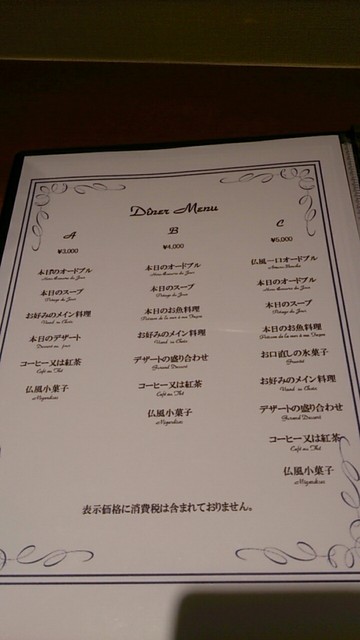 Dîner Menu
A
¥3,000
本日のオードブル
本日のスープ
お好みのメイン料理
Viand ou Choix
本日のデザート
コーヒー又は紅茶
Café ou Thé
仏風小菓子
Mignardises
B
¥4,000
本日のオードブル
本日のスープ
本日のお魚料理
お好みのメイン料理
Viand ou Choix
デザートの盛り合わせ
Grand Dessert
コーヒー又は紅茶
Café ou Thé
仏風小菓子
Mignardises
C
¥5,000
仏風一口オードブル
本日のオードブル
本日のスープ
本日のお魚料理
お口直しの氷菓子
Granité
お好みのメイン料理
Viand ou Choix
デザートの盛り合わせ
Grand Dessert
コーヒー又は紅茶
Café ou Thé
仏風小菓子
Mignardises
表示価格に消費税は含まれておりません。